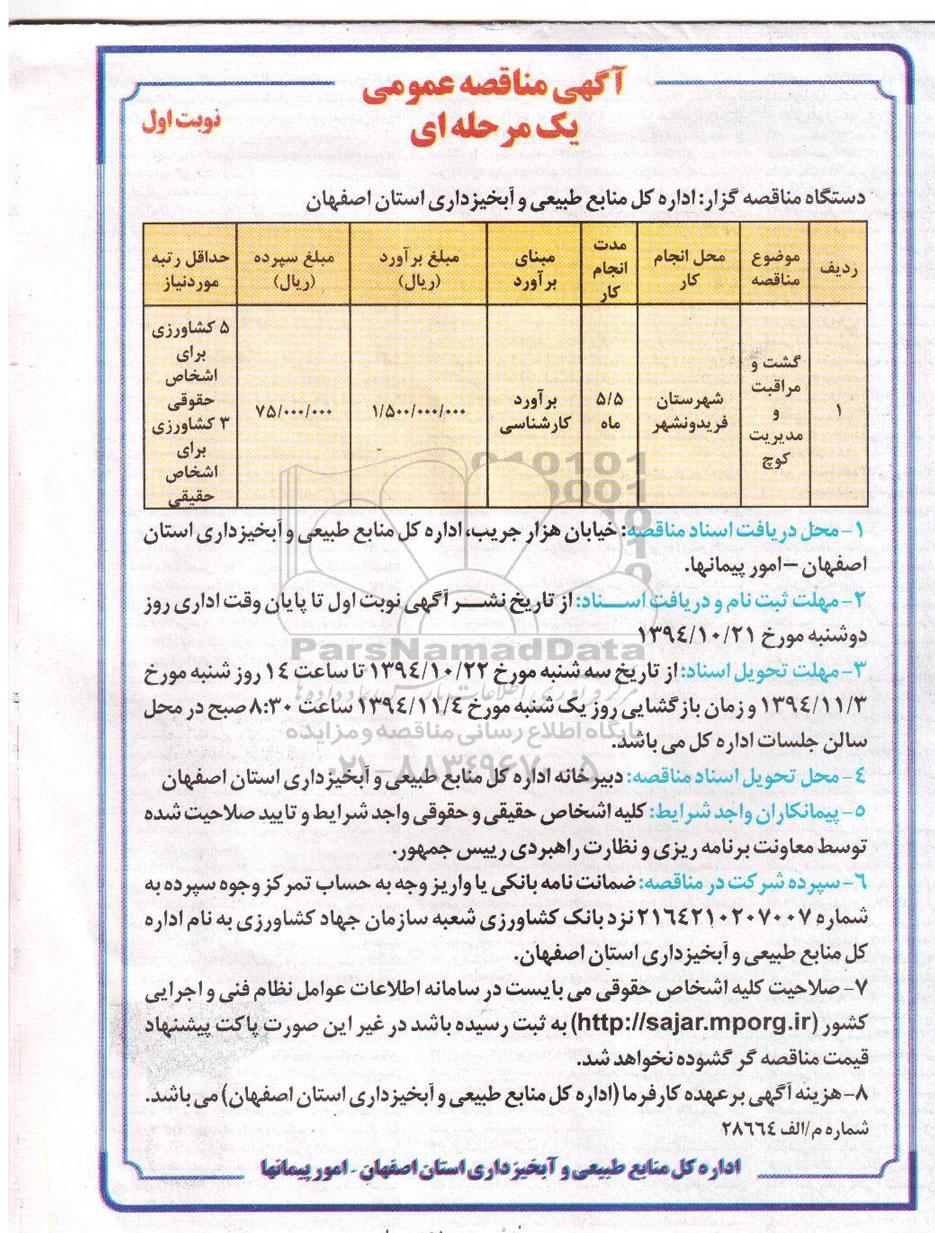 آگهی مناقصه عمومی
یک مرحله ای
نوبت اول
دستگاه مناقصه گزار: اداره کل منابع طبیعی و آبخیزداری استان اصفهان
ردیف
موضوع مناقصه
محل انجام کار
مدت انجام کار
مبنای برآورد
مبلغ برآورد (ریال)
مبلغ سپرده (ریال)
حداقل رتبه موردنیاز
۱
گشت و مراقبت و مدیریت کوچ
شهرستان فریدونشهر
۵/۵ ماه
برآورد کارشناسی
۱/۵۰۰/۰۰۰/۰۰۰
۷۵/۰۰۰/۰۰۰
۵ کشاورزی برای اشخاص حقوقی ۳ کشاورزی برای اشخاص حقیقی
۱- محل دریافت اسناد مناقصه: خیابان هزار جریب، اداره کل منابع طبیعی و آبخیزداری استان
اصفهان – امور پیمانها.
۲- مهلت ثبت نام و دریافت اسناد: از تاریخ نشر آگهی نوبت اول تا پایان وقت اداری روز
دوشنبه مورخ ۱۳۹۴/۱۰/۲۱
۳- مهلت تحویل اسناد: از تاریخ سه شنبه مورخ ۱۳۹۴/۱۰/۲۲ تا ساعت ۱۴ روز شنبه مورخ
۱۳۹۴/۱۱/۳ و زمان بازگشایی روز یک شنبه مورخ ۱۳۹۴/۱۱/۴ ساعت ۸:۳۰ صبح در محل
سالن جلسات اداره کل می باشد.
۴- محل تحویل اسناد مناقصه: دبیرخانه اداره کل منابع طبیعی و آبخیزداری استان اصفهان
۵- پیمانکاران واجد شرایط: کلیه اشخاص حقیقی و حقوقی واجد شرایط و تایید صلاحیت شده
توسط معاونت برنامه ریزی و نظارت راهبردی رییس جمهور.
۶- سپرده شرکت در مناقصه: ضمانت نامه بانکی یا واریز وجه به حساب تمرکز وجوه سپرده به
شماره ۲۱۶۴۲۱۰۲۰۷۰۰۷ نزد بانک کشاورزی شعبه سازمان جهاد کشاورزی به نام اداره
کل منابع طبیعی و آبخیزداری استان اصفهان.
۷- صلاحیت کلیه اشخاص حقوقی می بایست در سامانه اطلاعات عوامل نظام فنی و اجرایی
کشور (http://sajar.mporg.ir) به ثبت رسیده باشد در غیر این صورت پاکت پیشنهاد
قیمت مناقصه گر گشوده نخواهد شد.
۸- هزینه آگهی بر عهده کارفرما (اداره کل منابع طبیعی و آبخیزداری استان اصفهان) می باشد.
شماره م/الف ۲۸۶۶۴
اداره کل منابع طبیعی و آبخیزداری استان اصفهان - امور پیمانها
ParsNamadData
پایگاه اطلاع رسانی مناقصه و مزایده
۰۲۱-۸۸۳۴۹۶۷۰-۵